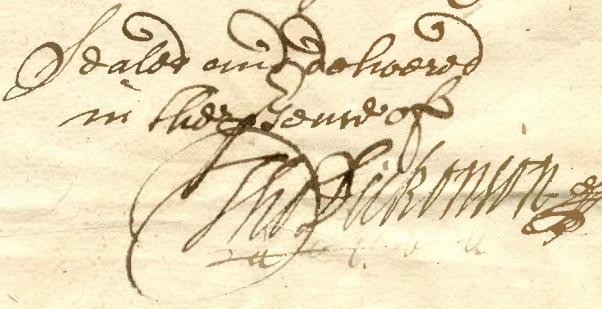 Sealed and delivered
in the presence of
Tho Dickonson